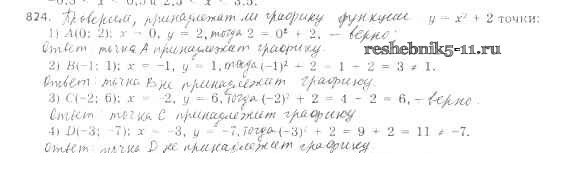 -0,5 < x < 0,5 и 2,5 < x < 3,5.
824. Проверим, принадлежат ли графику функции y = x² + 2 точки:
1) A(0; 2); x = 0, y = 2, тогда 2 = 0² + 2, – верно.
Ответ: точка A принадлежит графику.
reshebnik5-11.ru
2) B(-1; 1); x = -1, y = 1, тогда (-1)² + 2 = 1 + 2 = 3 ≠ 1.
Ответ: точка B не принадлежит графику.
3) C(-2; 6); x = -2, y = 6, тогда (-2)² + 2 = 4 + 2 = 6, – верно.
Ответ: точка C принадлежит графику
4) D(-3; -7); x = -3, y = -7, тогда (-3)² + 2 = 9 + 2 = 11 ≠ -7.
Ответ: точка D не принадлежит графику.